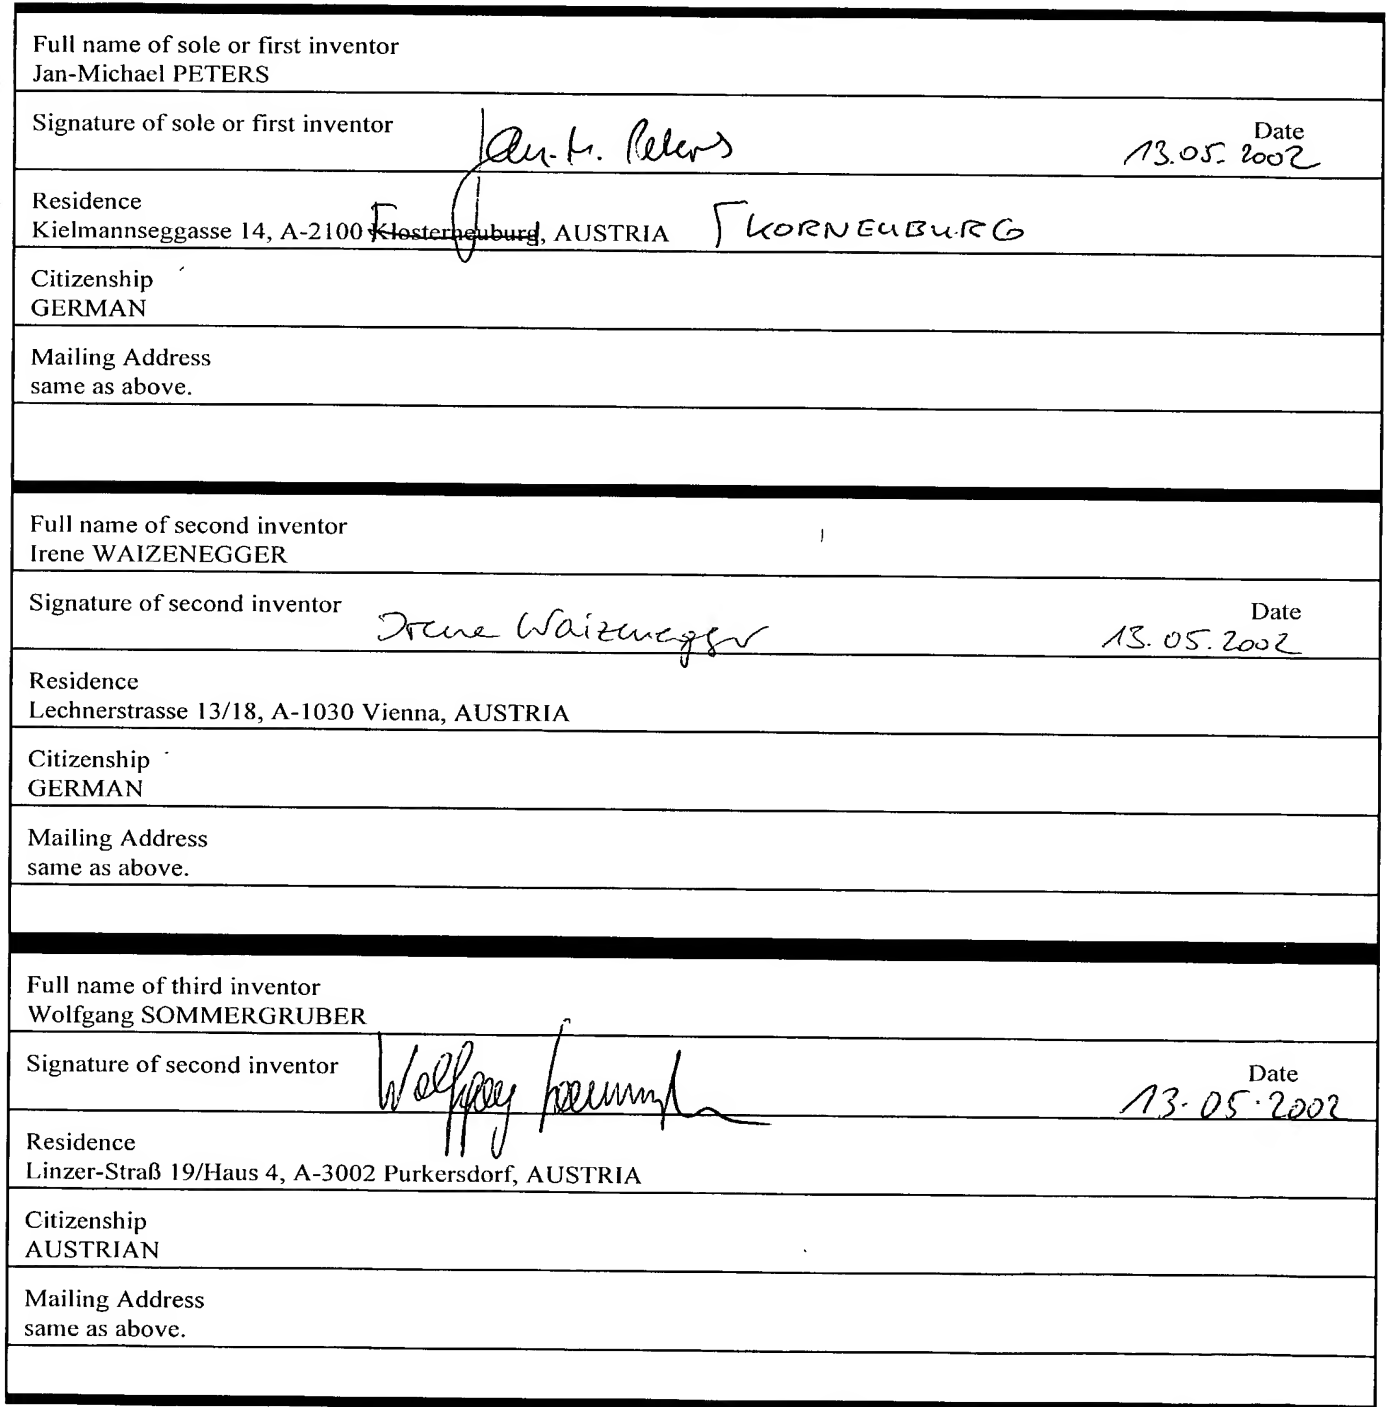 Full name of sole or first inventor
Jan-Michael PETERS
Signature of sole or first inventor Jan-M. Peters Date
13.05.2002
Residence
Kielmannseggasse 14, A-2100 Klosterneuburg, AUSTRIA KORNEUBURG
Citizenship
GERMAN
Mailing Address
same as above.
Full name of second inventor
Irene WAIZENEGGER
Signature of second inventor Irene Waizenegger Date
13.05.2002
Residence
Lechnerstrasse 13/18, A-1030 Vienna, AUSTRIA
Citizenship
GERMAN
Mailing Address
same as above.
Full name of third inventor
Wolfgang SOMMERGRUBER
Signature of second inventor Wolfgang Date
13.05.2002
Residence
Linzer-Straß 19/Haus 4, A-3002 Purkersdorf, AUSTRIA
Citizenship
AUSTRIAN
Mailing Address
same as above.